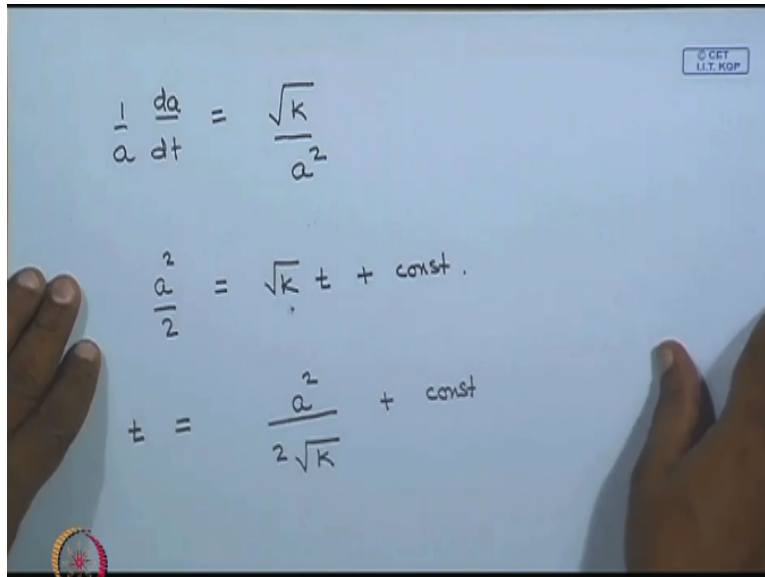 © CET
I.I.T. KGP
1/a da/dt = √K/a²
a²/2 = √K t + const.
t = a²/2√K + const